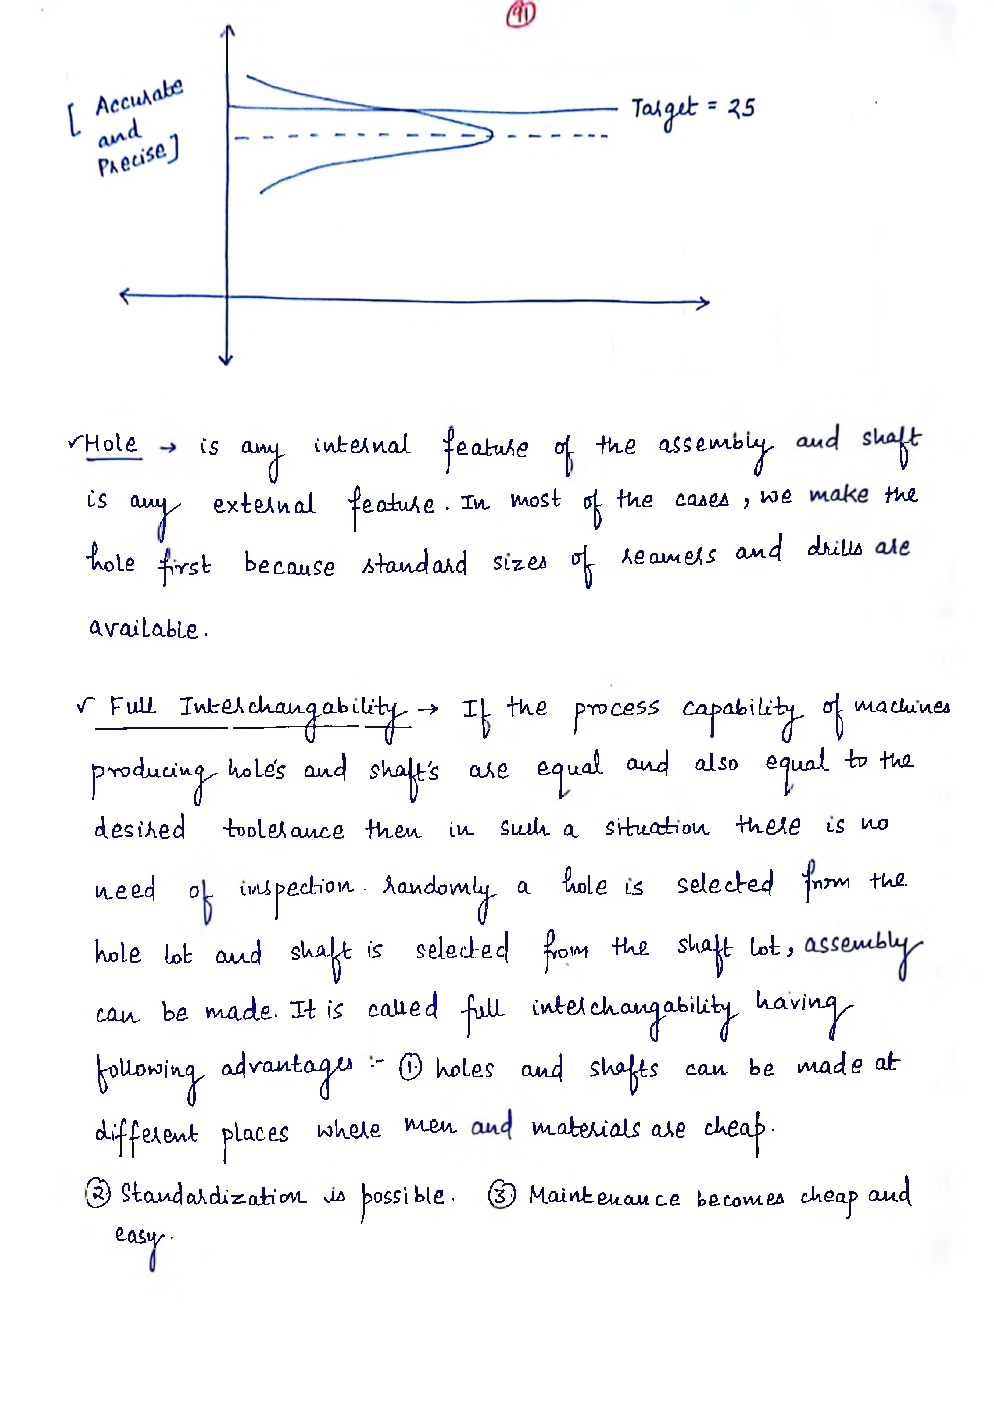 91
[ Accurate
and
Precise]
Target = 25
✓Hole → is any internal feature of the assembly and shaft
is any external feature. In most of the cases, we make the
hole first because standard sizes of reamers and drills are
available.
✓ Full Interchangability → If the process capability of machines
producing hole's and shaft's are equal and also equal to the
desired toolerance then in such a situation there is no
need of inspection. Randomly a hole is selected from the
hole lot and shaft is selected from the shaft lot, assembly
can be made. It is called full interchangability having
following advantages :- ① holes and shafts can be made at
different places where men and materials are cheap.
② Standardization is possible. ③ Maintenance becomes cheap and
easy.